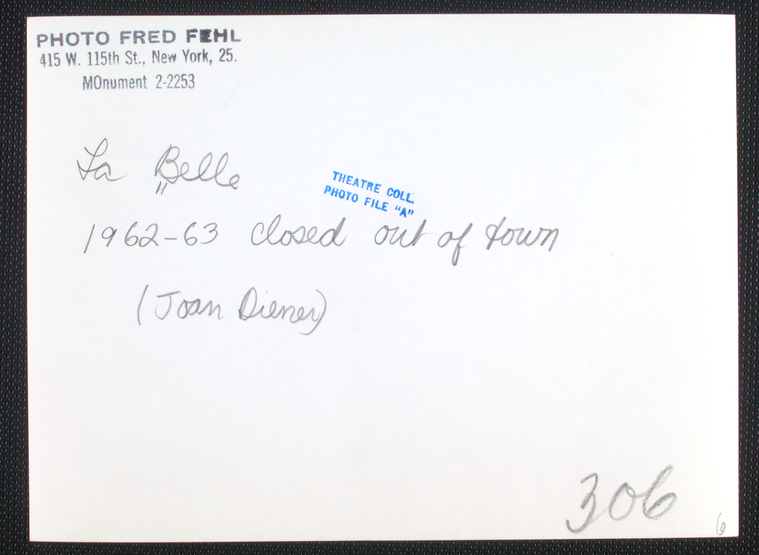 PHOTO FRED FEHL
415 W. 115th St., New York, 25.
MOnument 2-2253
La Belle
THEATRE COLL.
PHOTO FILE "A"
1962-63 closed out of town
(Joan Diener)
306
6